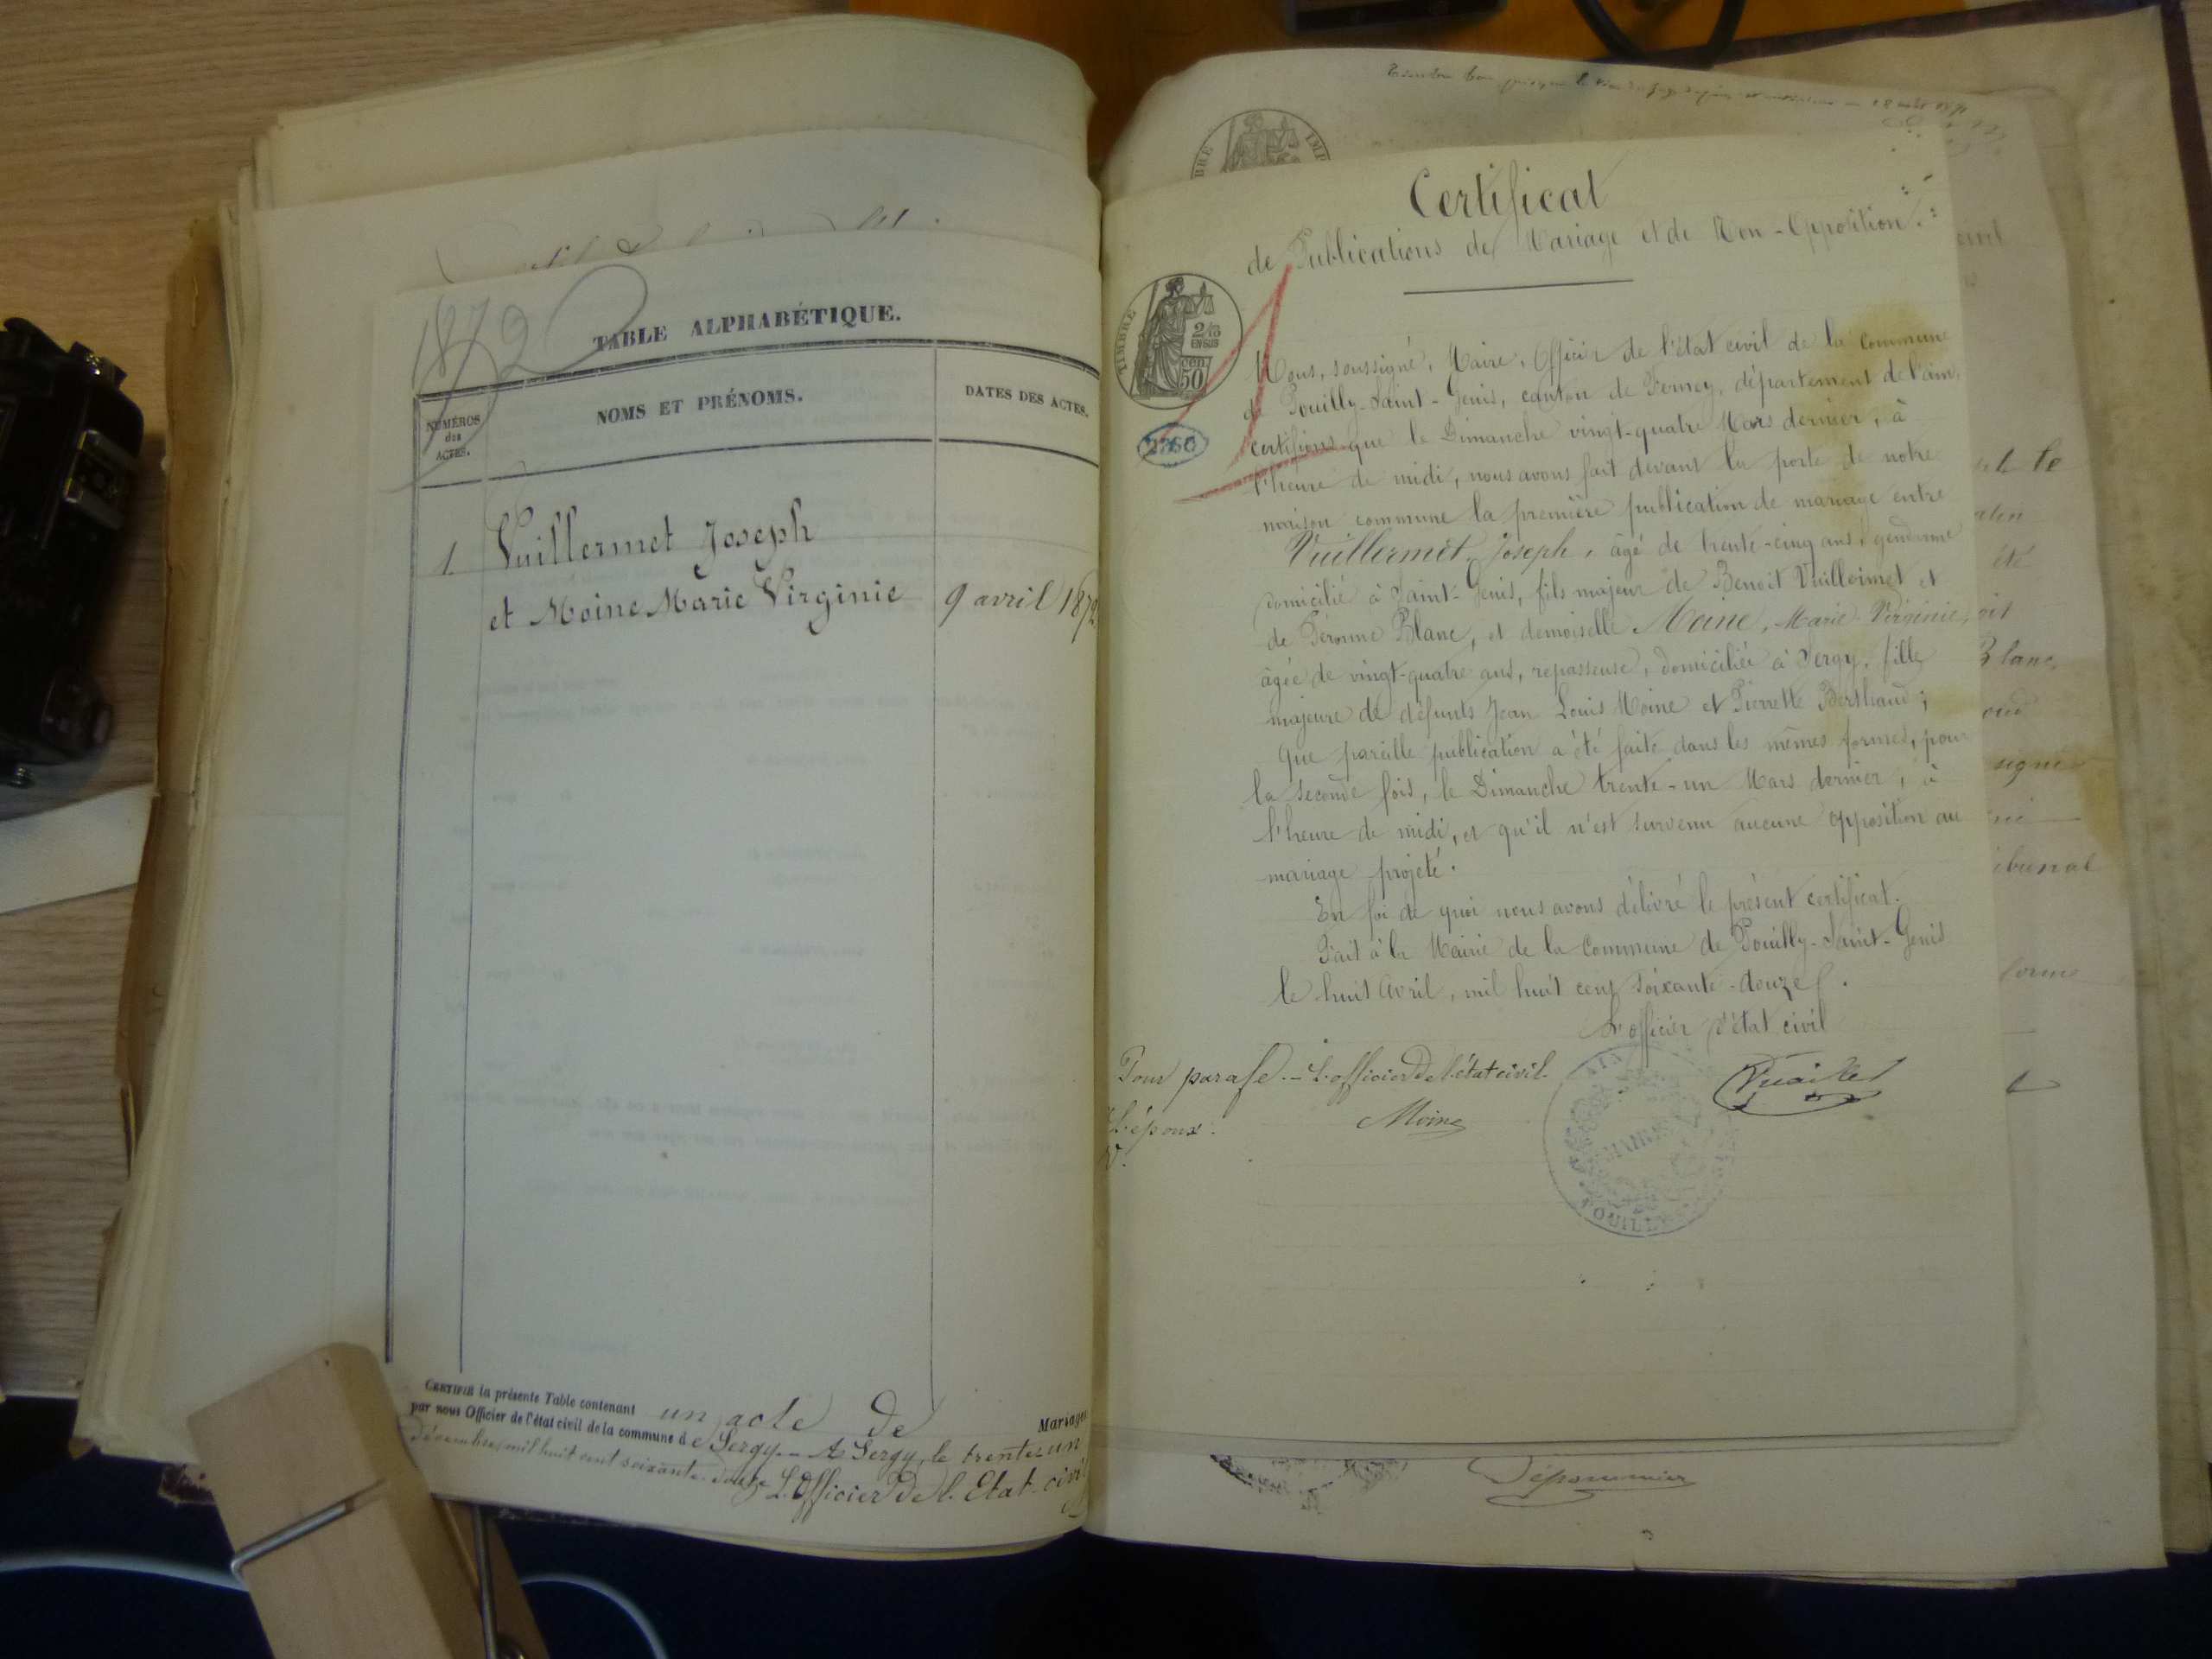 1872
TABLE ALPHABÉTIQUE.
NUMÉROS
des
ACTES.
NOMS ET PRÉNOMS.
DATES DES ACTES.
1. Vuillermet Joseph
et Moine Marie Virginie 9 avril 1872
CERTIFIÉ la présente Table contenant un acte de Mariages
par nous Officier de l'état civil de la commune d e Sergy. - A Sergy, le trente-un
décembre mil huit cent soixante-douze L'Officier de l'Etat-civil
Certificat
de Publications de Mariage et de Non-Opposition.
TIMBRE
2/10
EN SUS
50 cen
2360
Nous, soussigné, Maire, Officier de l'état civil de la Commune
de Pouilly-Saint-Genis, canton de Ferney, département de l'ain,
certifions que le Dimanche vingt-quatre Mars dernier, à
l'heure de midi, nous avons fait devant la porte de notre
maison commune la première publication de mariage entre
Vuillermet, Joseph, âgé de trente-cinq ans, gendarme
domicilié à Saint-Genis, fils majeur de Benoit Vuillermet et
de Péronne Blanc, et demoiselle Moine, Marie Virginie,
âgée de vingt-quatre ans, repasseuse, domiciliée à Sergy, fille
majeure de défunts Jean Louis Moine et Pierrette Berthaud;
Que pareille publication a été faite dans les mêmes formes, pour
la seconde fois, le Dimanche trente-un Mars dernier, à
l'heure de midi, et qu'il n'est survenu aucune opposition au
mariage projeté.
En foi de quoi nous avons délivré le présent certificat.
Fait à la Mairie de la Commune de Pouilly-Saint-Genis
le huit Avril, mil huit cent soixante-douze.
L'officier d'état civil
Pour parafe. - L'officier de l'état civil.
L'époux.
V.
Moine
MAIRIE
POUILLY
Blanc,
signé